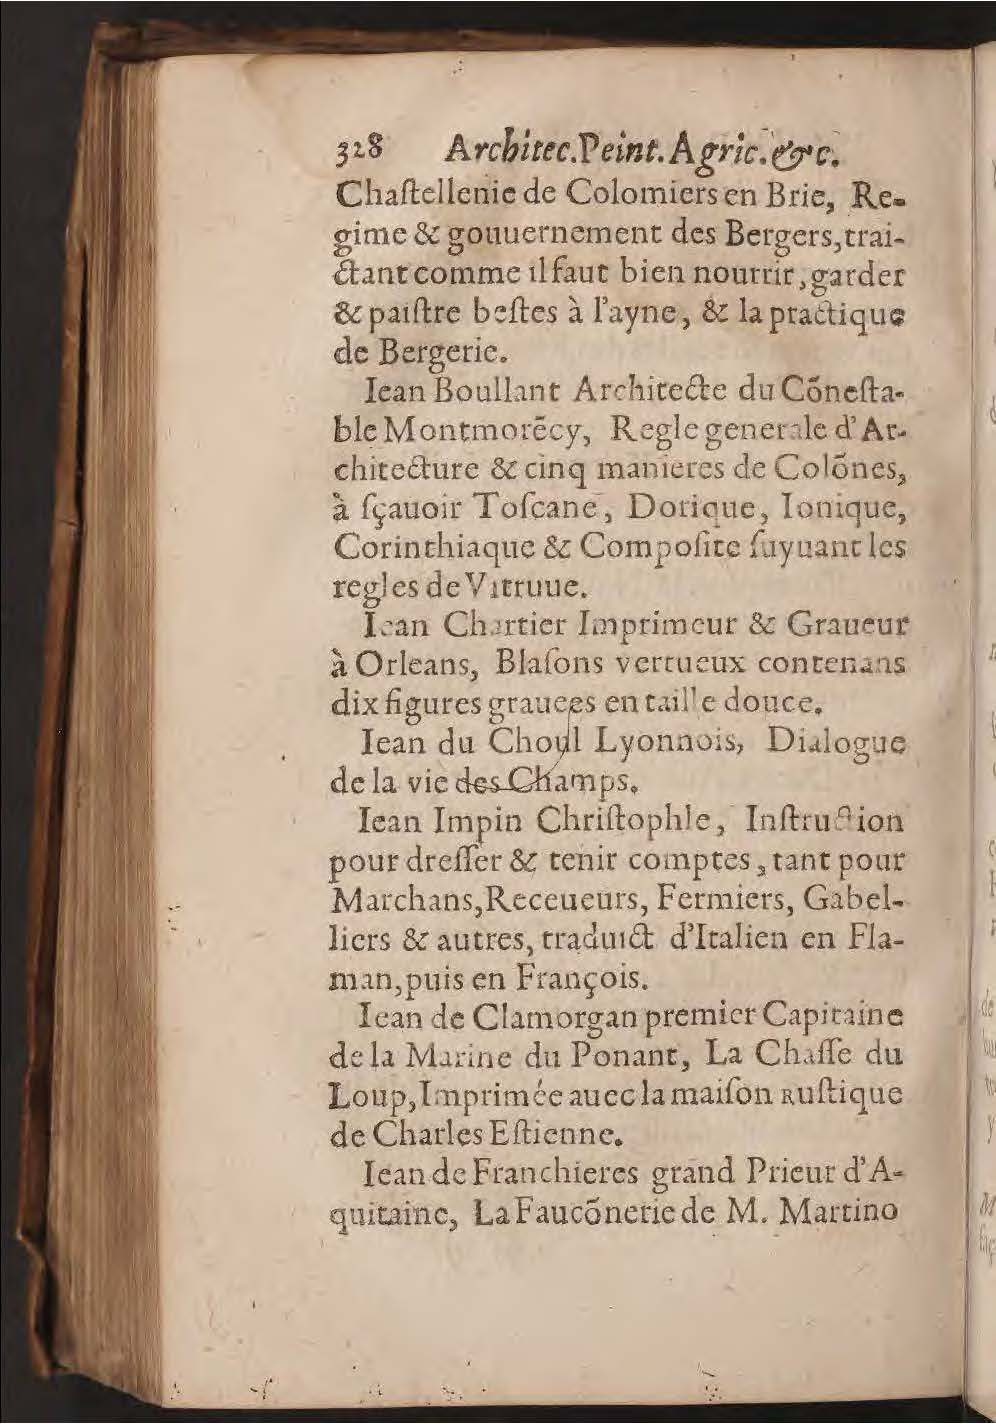 328 Architec.Peint.Agric.&c.
Chaſtellenie de Colomiers en Brie, Re-
gime & gouuernement des Bergers,trai-
ctant comme il faut bien nourrir,garder
& paiſtre beſtes à l'ayne, & la practique
de Bergerie.
Iean Boullant Architecte du Cõneſta-
ble Montmorẽcy, Regle generale d'Ar-
chitecture & cinq manieres de Colõnes,
à ſçauoir Toſcane, Dorique, Ionique,
Corinthiaque & Compoſite ſuyuant les
regles de Vitruue.
Iean Chartier Imprimeur & Graueur
à Orleans, Blaſons vertueux contenans
dix figures grauees en taille douce.
Iean du Choul Lyonnois, Dialogue
de la vie des Champs.
Iean Impin Chriſtophle, Inſtruction
pour dreſſer & tenir comptes, tant pour
Marchans,Receueurs, Fermiers, Gabel-
liers & autres, traduict d'Italien en Fla-
man,puis en François.
Iean de Clamorgan premier Capitaine
de la Marine du Ponant, La Chaſſe du
Loup,Imprimée auec la maiſon Ruſtique
de Charles Eſtienne.
Iean de Franchieres grand Prieur d'A-
quitaine, La Faucõnerie de M. Martino